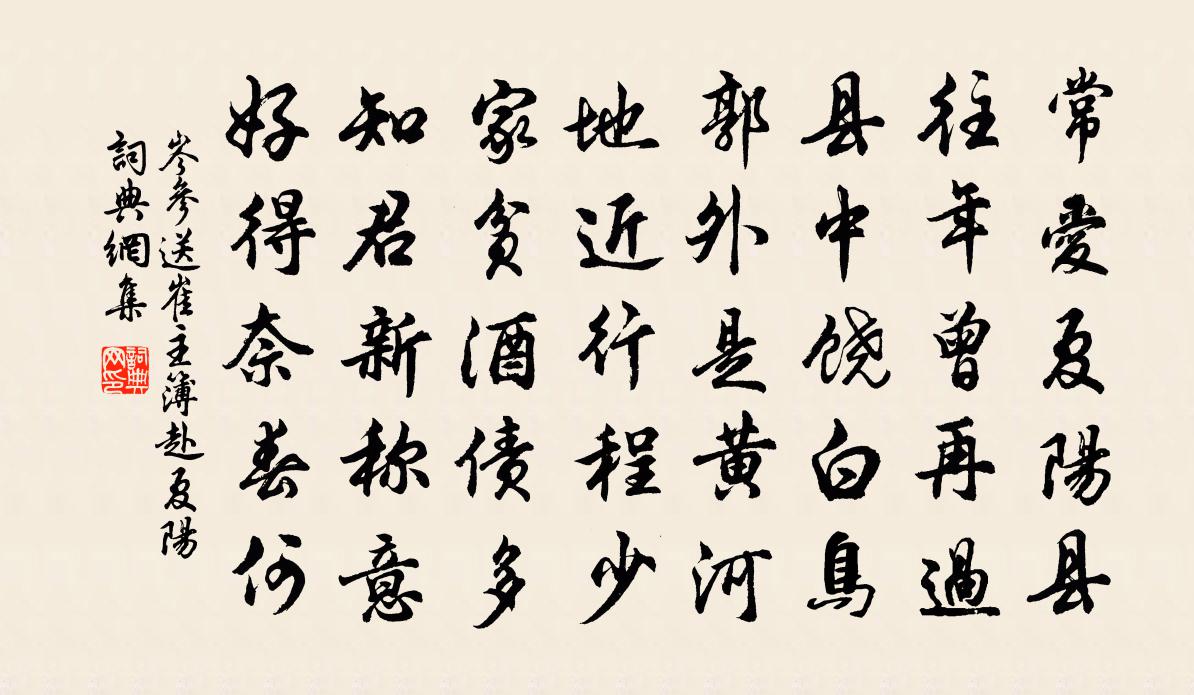 常愛夏陽县
往年曾再過
县中饶白鳥
郭外是黄河
地近行程少
家貧酒债多
知君新称意
好得奈春何
岑參送崔主簿赴夏陽
詞典網集
詞典
网印